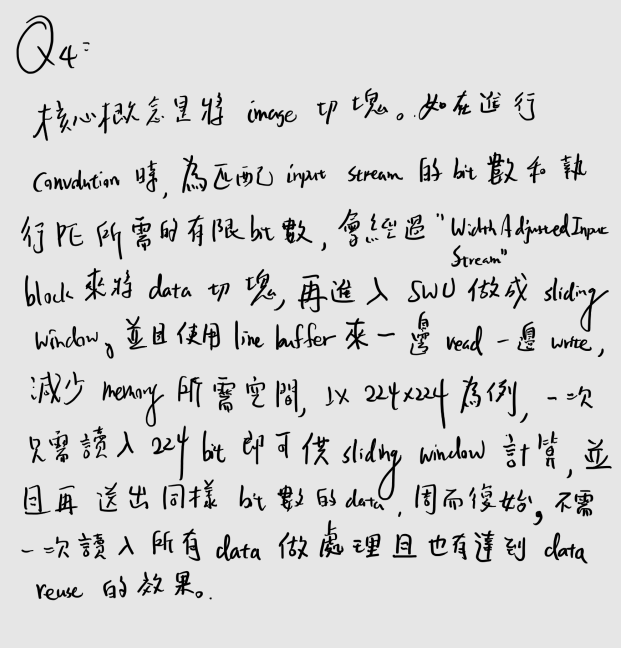 Q4:
核心概念是將 image 切塊。如在進行
Convolution 時, 為匹配 input stream 的 bit 數和執
行 PE 所需的有限 bit 數, 會經過 "Width Adjusted Input
Stream"
block 來將 data 切塊, 再進入 SWU 做成 sliding
window, 並且使用 line buffer 來一邊 read 一邊 write,
減少 memory 所需空間, 以 224x224 為例, 一次
只需讀入 224 bit 即可供 sliding window 計算, 並
且再送出同樣 bit 數的 data, 周而復始, 不需
一次讀入所有 data 做處理且也有達到 data
reuse 的效果。